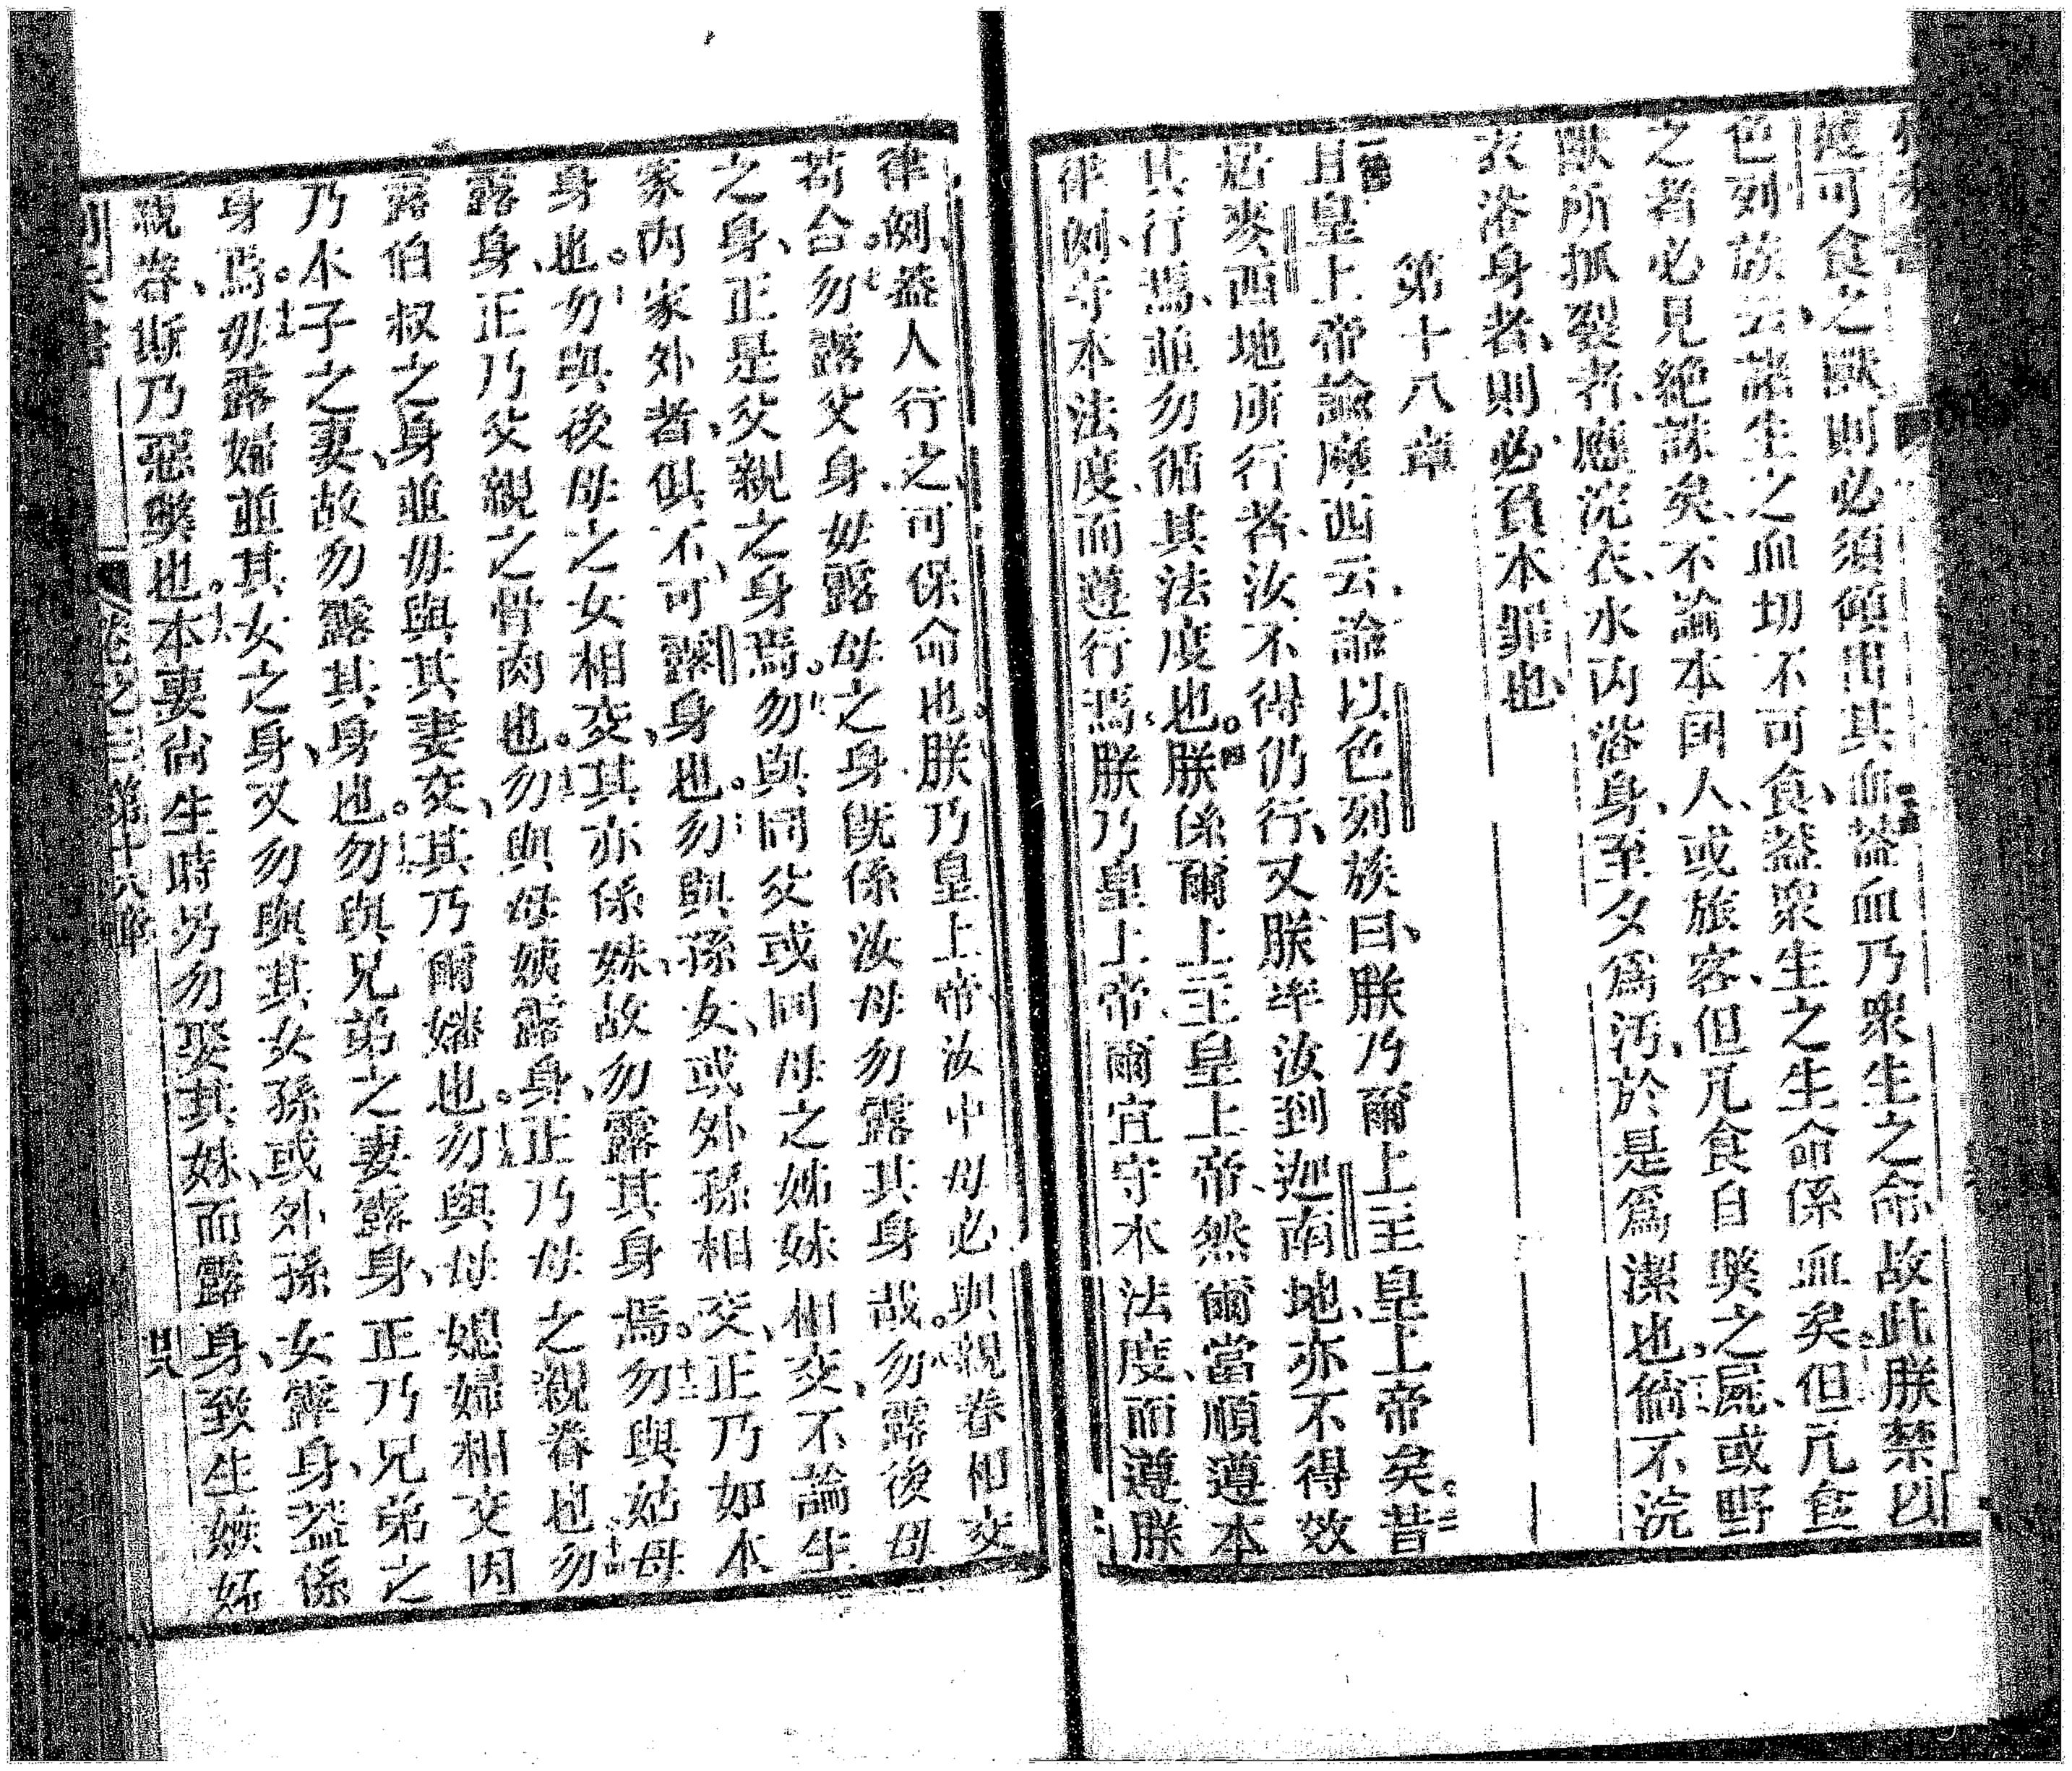 度可食之獸則必須傾出其血蓋血乃衆生之命故此朕禁以
色列族云諸生之血切不可食蓋衆生之生命係血矣但凡食
之者必見絕誅矣不論本国人或旅客但凡食自斃之屍或野
獸所抓裂者應浣衣水內浴身至夕爲汚於是爲潔也倘不浣
衣浴身者則必負本罪也
第十八章
且皇上帝諭摩西云諭以色列族曰朕乃爾上主皇上帝矣昔
居麥西地所行者汝不得仍行又朕率汝到迦南地亦不得效
其行焉並勿循其法度也朕係爾上主皇上帝然爾當順遵本
律例守本法度而遵行焉朕乃皇上帝爾宜守本法度而遵朕
律例蓋人行之可保命也朕乃皇上帝汝中毋必與親眷相交
苟合勿露父身毋露母之身旣係汝母勿露其身哉勿露後母
之身正是父親之身焉勿與同父或同母之姊妹相交不論生
家內家外者俱不可露身也勿與孫女或外孫相交正乃如本
身也勿與後母之女相交其亦係妹故勿露其身焉勿與姑母
露身正乃父親之骨肉也勿與母姨露身正乃母之親眷也勿
露伯叔之身並毋與其妻交其乃爾嬸也勿與母媳婦相交因
乃本子之妻故勿露其身也勿與兄弟之妻露身正乃兄弟之
身焉毋露婦並其女之身又勿與其女孫或外孫女露身蓋係
親眷斯乃惡獘也本妻尙生時另勿娶其妹而露身致生嫉妬
卷之三第十八章 廿八